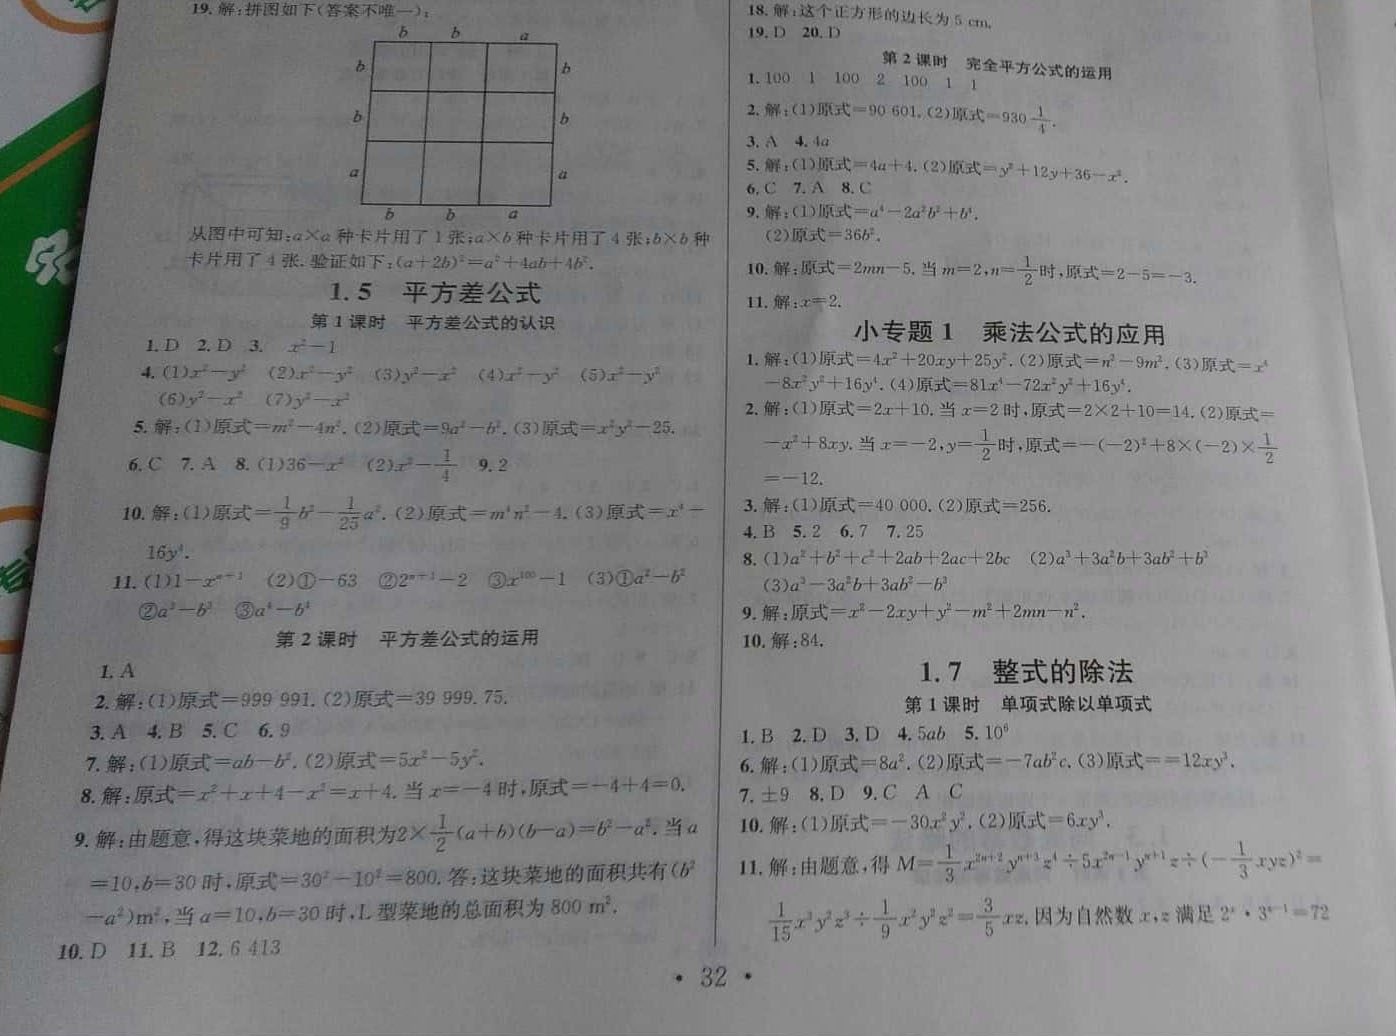 19. 解:拼图如下(答案不唯一):
b b a
b b
b b
a a
b b a
从图中可知:a×a 种卡片用了 1 张;a×b 种卡片用了 4 张;b×b 种
卡片用了 4 张. 验证如下:(a+2b)²=a²+4ab+4b².
1.5 平方差公式
第 1 课时 平方差公式的认识
1. D 2. D 3. x²-1
4. (1)x²-y² (2)x²-y² (3)y²-x² (4)x²-y² (5)x²-y²
(6)y²-x² (7)y²-x²
5. 解:(1)原式=m²-4n². (2)原式=9a²-b². (3)原式=x²y²-25.
6. C 7. A 8. (1)36-x² (2)x²-1/4 9. 2
10. 解:(1)原式=1/9b²-1/25a². (2)原式=m⁴n²-4. (3)原式=x⁴-
16y⁴.
11. (1)1-xⁿ⁺¹ (2)①-63 ②2ⁿ⁺¹-2 ③x¹⁰⁰-1 (3)①a²-b²
②a³-b³ ③a⁴-b⁴
第 2 课时 平方差公式的运用
1. A
2. 解:(1)原式=999 991. (2)原式=39 999.75.
3. A 4. B 5. C 6. 9
7. 解:(1)原式=ab-b². (2)原式=5x²-5y².
8. 解:原式=x²+x+4-x²=x+4. 当 x=-4 时,原式=-4+4=0.
9. 解:由题意,得这块菜地的面积为2×1/2(a+b)(b-a)=b²-a². 当 a
=10,b=30 时,原式=30²-10²=800. 答:这块菜地的面积共有(b²
-a²)m²,当 a=10,b=30 时,L 型菜地的总面积为 800 m².
10. D 11. B 12. 6 413
18. 解:这个正方形的边长为 5 cm.
19. D 20. D
第 2 课时 完全平方公式的运用
1. 100 1 100 2 100 1 1
2. 解:(1)原式=90 601. (2)原式=930 1/4.
3. A 4. 4a
5. 解:(1)原式=4a+4. (2)原式=y²+12y+36-x².
6. C 7. A 8. C
9. 解:(1)原式=a⁴-2a²b²+b⁴.
(2)原式=36b².
10. 解:原式=2mn-5. 当 m=2,n=1/2时,原式=2-5=-3.
11. 解:x=2.
小专题 1 乘法公式的应用
1. 解:(1)原式=4x²+20xy+25y². (2)原式=n²-9m². (3)原式=x⁴
-8x²y²+16y⁴. (4)原式=81x⁴-72x²y²+16y⁴.
2. 解:(1)原式=2x+10. 当 x=2 时,原式=2×2+10=14. (2)原式=
-x²+8xy. 当 x=-2,y=1/2时,原式=-(-2)²+8×(-2)×1/2
=-12.
3. 解:(1)原式=40 000. (2)原式=256.
4. B 5. 2 6. 7 7. 25
8. (1)a²+b²+c²+2ab+2ac+2bc (2)a³+3a²b+3ab²+b³
(3)a³-3a²b+3ab²-b³
9. 解:原式=x²-2xy+y²-m²+2mn-n².
10. 解:84.
1.7 整式的除法
第 1 课时 单项式除以单项式
1. B 2. D 3. D 4. 5ab 5. 10⁶
6. 解:(1)原式=8a². (2)原式=-7ab²c. (3)原式==12xy³.
7. ±9 8. D 9. C A C
10. 解:(1)原式=-30x²y². (2)原式=6xy³.
11. 解:由题意,得 M=1/3x²ⁿ⁺²yⁿ⁺³z⁴÷5x²ⁿ⁻¹yⁿ⁺¹z÷(-1/3xyz)²=
1/15x³y²z³÷1/9x²y²z²=3/5xz. 因为自然数 x,z 满足 2ˣ·3ᶻ⁻¹=72
· 32 ·